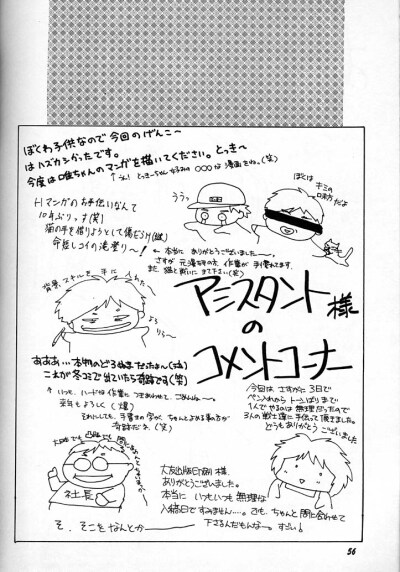 ぼくわ子供なので今回のげんこ〜
はハズカシかったです。
今度は唯ちゃんのマンガを描いてください。とっき〜
↑うん! とっきーちゃん
○○○は漫画をね。(笑)
ううっ
ぼくは
キミの
味方
だよ
Hマンガのお手伝いなんて
10年ぶりっす(笑)
猫の手を借りようとして傷だらけ
命短しコイの滝登り〜!
←本当に ありがとうございました〜。
さすが 元漫研の方、作業が 手慣れてます。
また、猫と戦いに 来て下さい(笑)
背景、スキルを 手に 入れた
アシスタント様
の
コメントコーナー
あああ…本物のどろぬまだったよ〜(泣)
これが冬コミで出ていたら奇跡です(笑)
↑いつも、ハードな作業に つきあわせて、ごめんね〜。
来年もよろしく(爆)
それにしても、手書きの字が、ちゃんとよめる事の方が
奇跡だネ(笑)
今回は、さすがに 3日で
ペン入れから トーンはりまで
1人でやるのは 無理だったので
3人の戦士達に 手伝って 頂きました。
どうもありがとうございました
社長
大友出版印刷 様、
ありがとうございました。
本当に いつもいつも 無理な
入稿日で すみません…。でも、ちゃんと 間に合わせて
下さるんだもんな〜。すごい!
そ、そこをなんとか
56